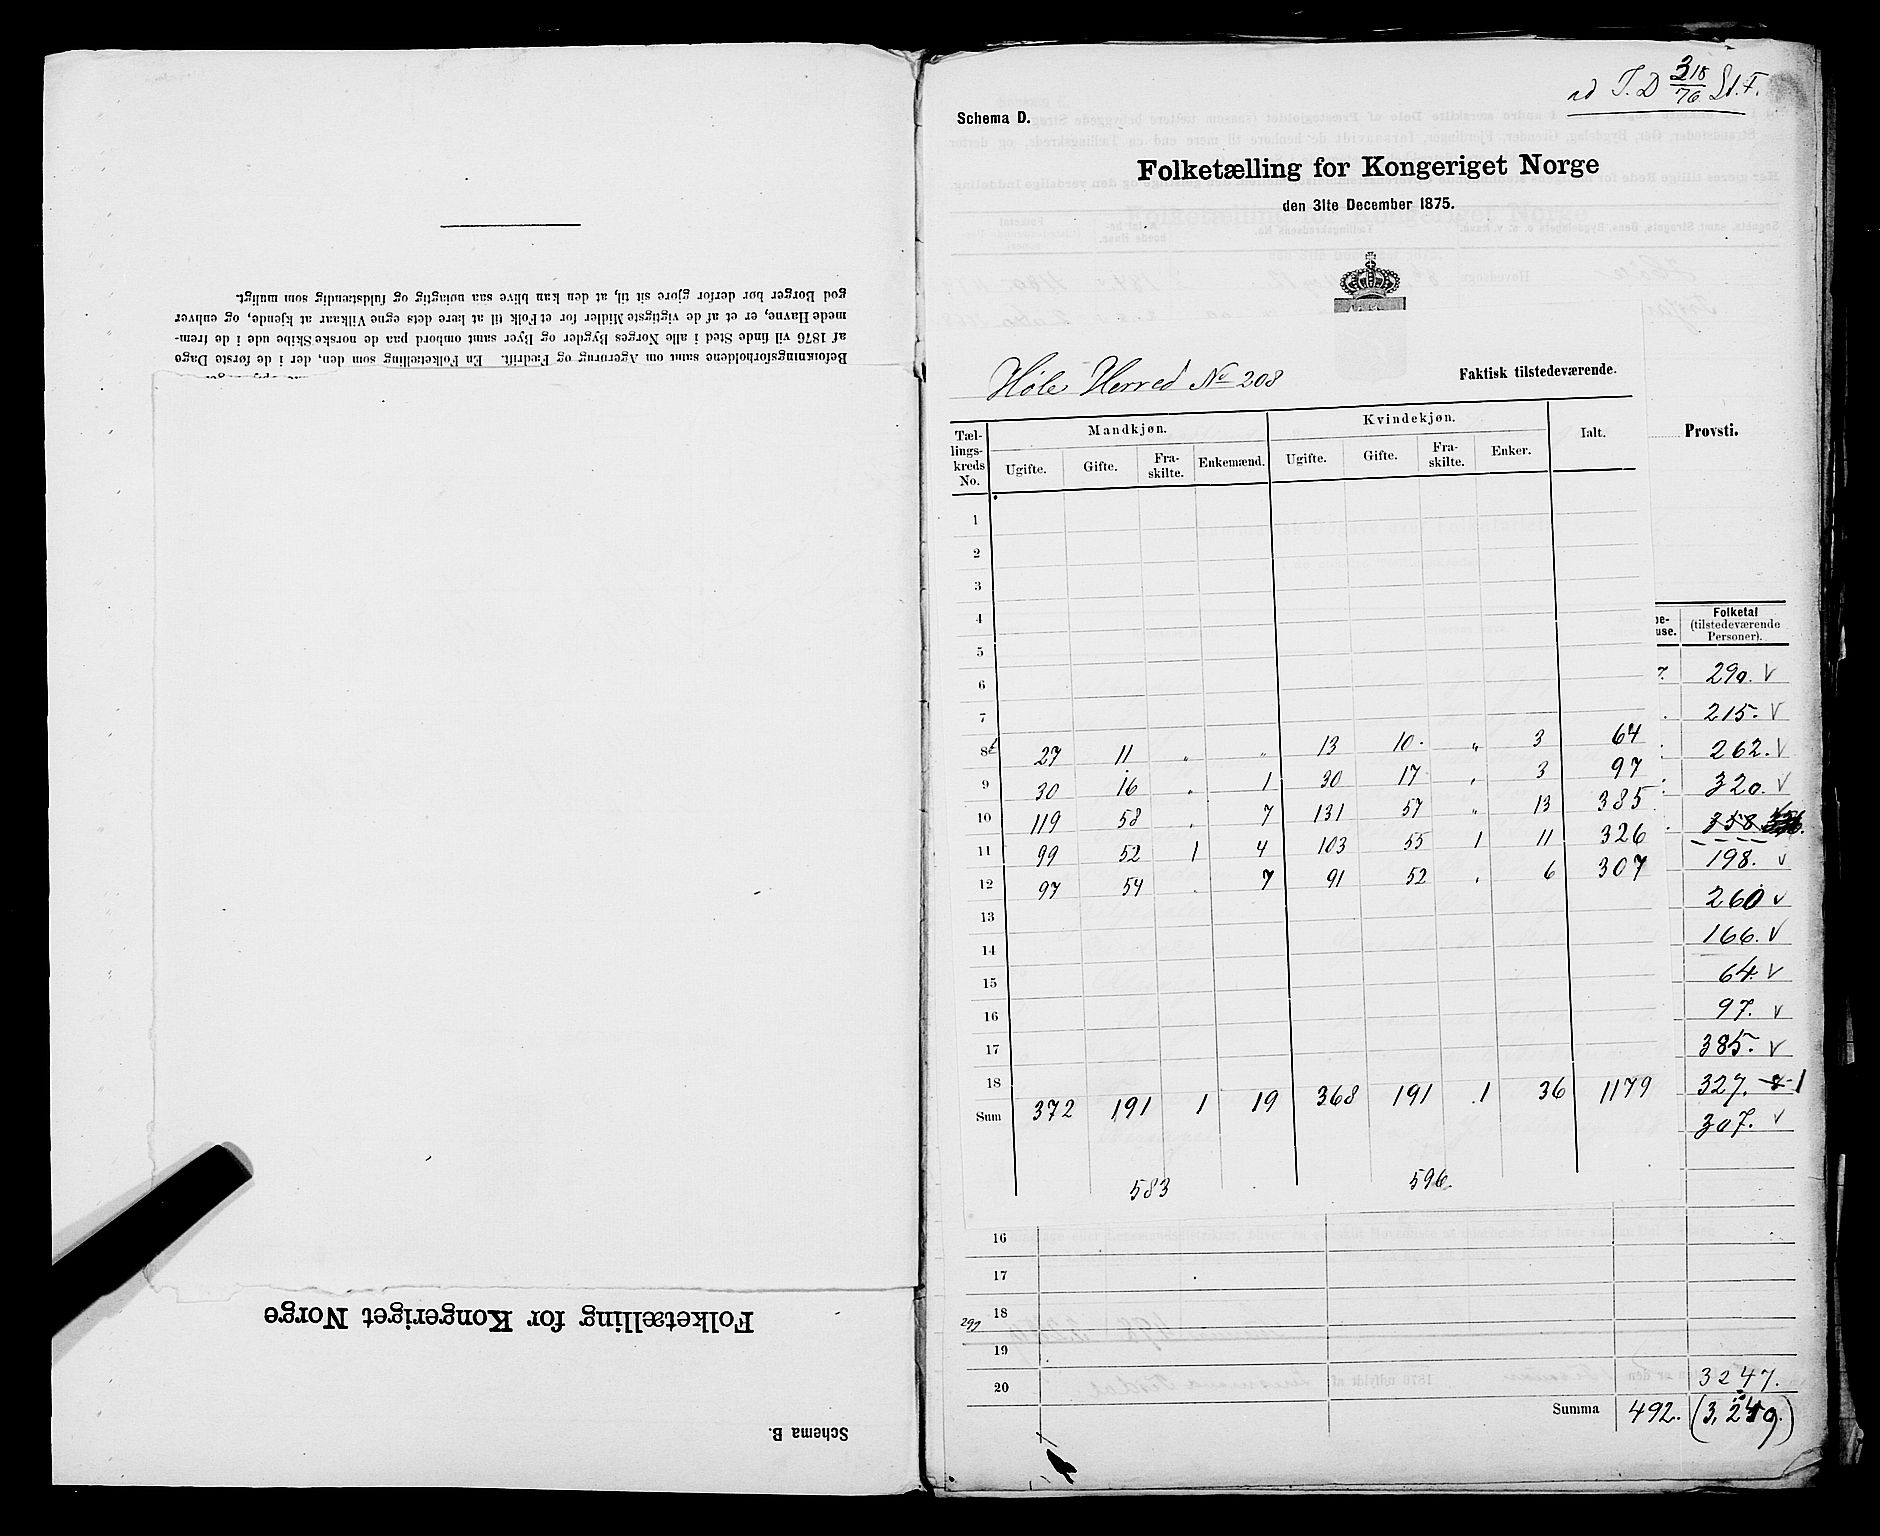 Befolkningsforholdene samt om Agerbrug og Fædrift. En Folketælling som den, der i de første Dage
af 1876 vil finde Sted i alle Norges Bygder og Byer samt ombord paa de norske Skibe ude i de frem-
mede Havne, er et af de vigtigste Midler for et Folk til at lære dets egne Vilkaar at kjende, og enhver
god Borger bør derfor gjøre sit til, at den kan blive saa nøiagtig og fuldstændig som muligt.
Schema B.
Folketælling for Kongeriget Norge
ad T. D 318/76 Ld. F.
Schema D.
Folketælling for Kongeriget Norge
den 31te December 1875.
Høle Herred No 208
Faktisk tilstedeværende.
Tællingskreds No. Mandkjøn. Kvindekjøn. Ialt.
Ugifte. Gifte. Fraskilte. Enkemænd. Ugifte. Gifte. Fraskilte. Enker.
1
2
3
4
5
6
7
8 27 11 " " 13 10 " 3 64
9 30 16 " 1 30 17 " 3 97
10 119 58 . 7 131 57 " 13 385
11 99 52 1 4 103 55 1 11 326
12 97 54 . 7 91 52 . 6 307
13
14
15
16
17
18
Sum 372 191 1 19 368 191 1 36 1179
583 596
Provsti.
Folketal
(tilstedeværende
Personer).
290. √
215. √
262. √
320. √
358
198. √
260 √
166. √
64. √
97. √
385. √
327. 1
307. √
16
17
18
19
20
3247.
Summa 492. (3,249.)